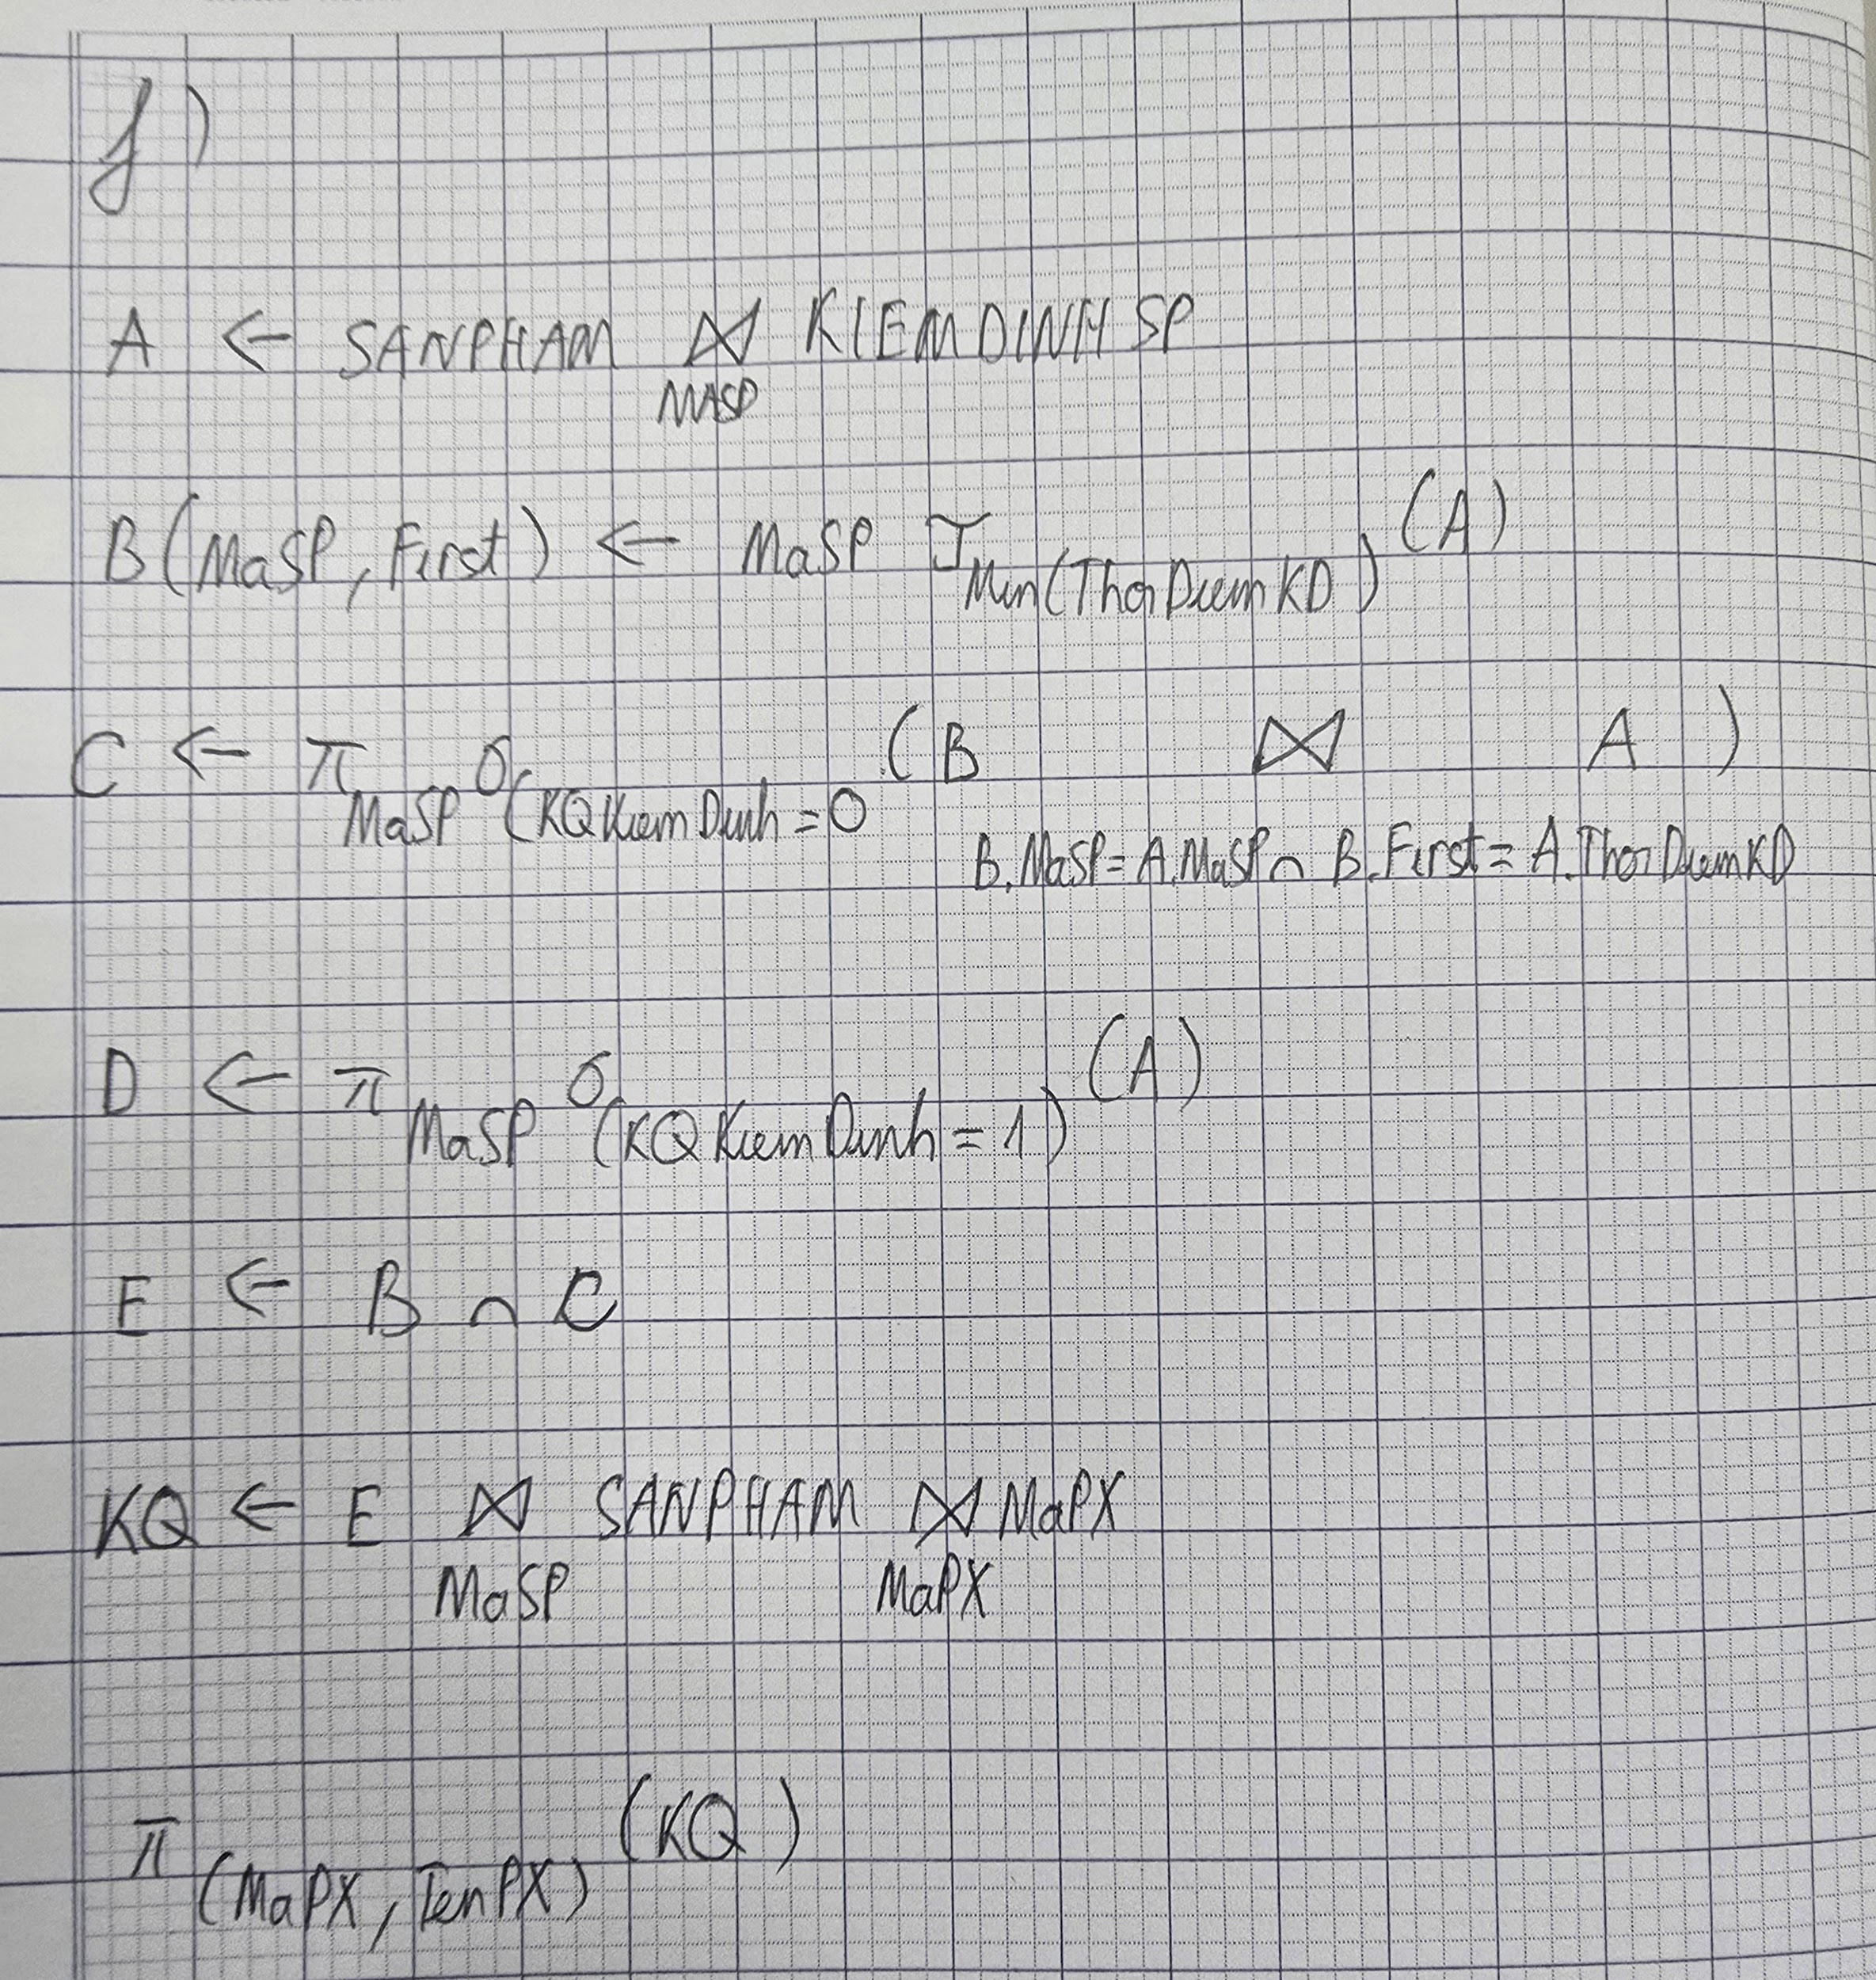 f)
A ← SANPHAM ⋈ KIEMDINHSP
MASP
B(MaSP, First) ← MaSP ℑ Min(ThoiDiemKD) (A)
C ← π MaSP σ(KQKiemDinh = 0 (B ⋈ A)
B.MaSP = A.MaSP ∩ B.First = A.ThoiDiemKD
D ← π MaSP σ(KQKiemDinh = 1) (A)
E ← B ∩ C
KQ ← E ⋈ SANPHAM ⋈ MaPX
MaSP MaPX
π (MaPX, TenPX) (KQ)